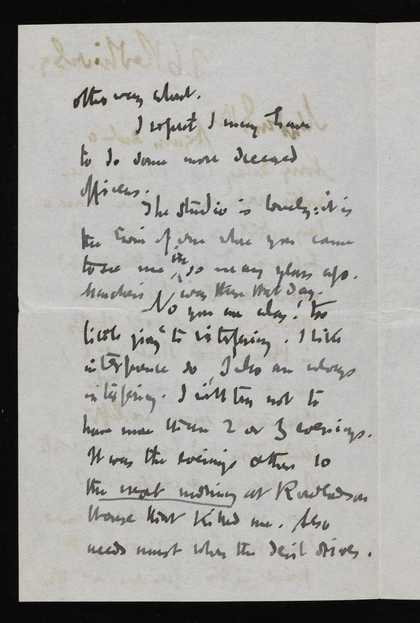 other way about.
I expect I may have
to do some more deceased
officers.
The studio is lovely: it is
the twin of one where you came
to see me in, so many years ago.
was there that day.
No you are always too
little given to interfering. I like
interference so I also am always
interfering. I will try not to
have more than 2 or 3 evenings.
It was the evenings after 10
the next morning at
House that killed me. Also
needs must when the devil drives.